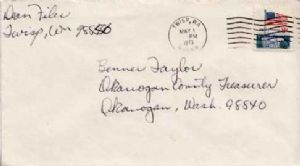 Dean Filer
Twisp, Wn 98856
TWISP, WA
MAY 1
PM
1973
Benner Taylor
Okanogan County Treasurer
Okanogan, Wash. 98840